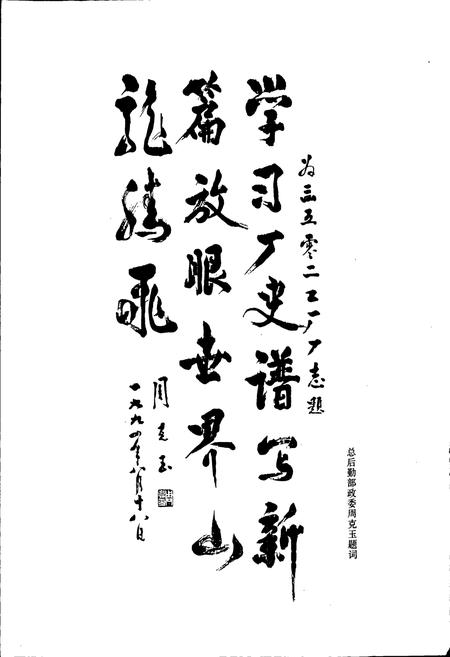 为三五零二工厂厂志题
学习厂史谱写新
篇放眼世界山
龙腾飛
周克玉
一九九四年八月十八日
总后勤部政委周克玉题词